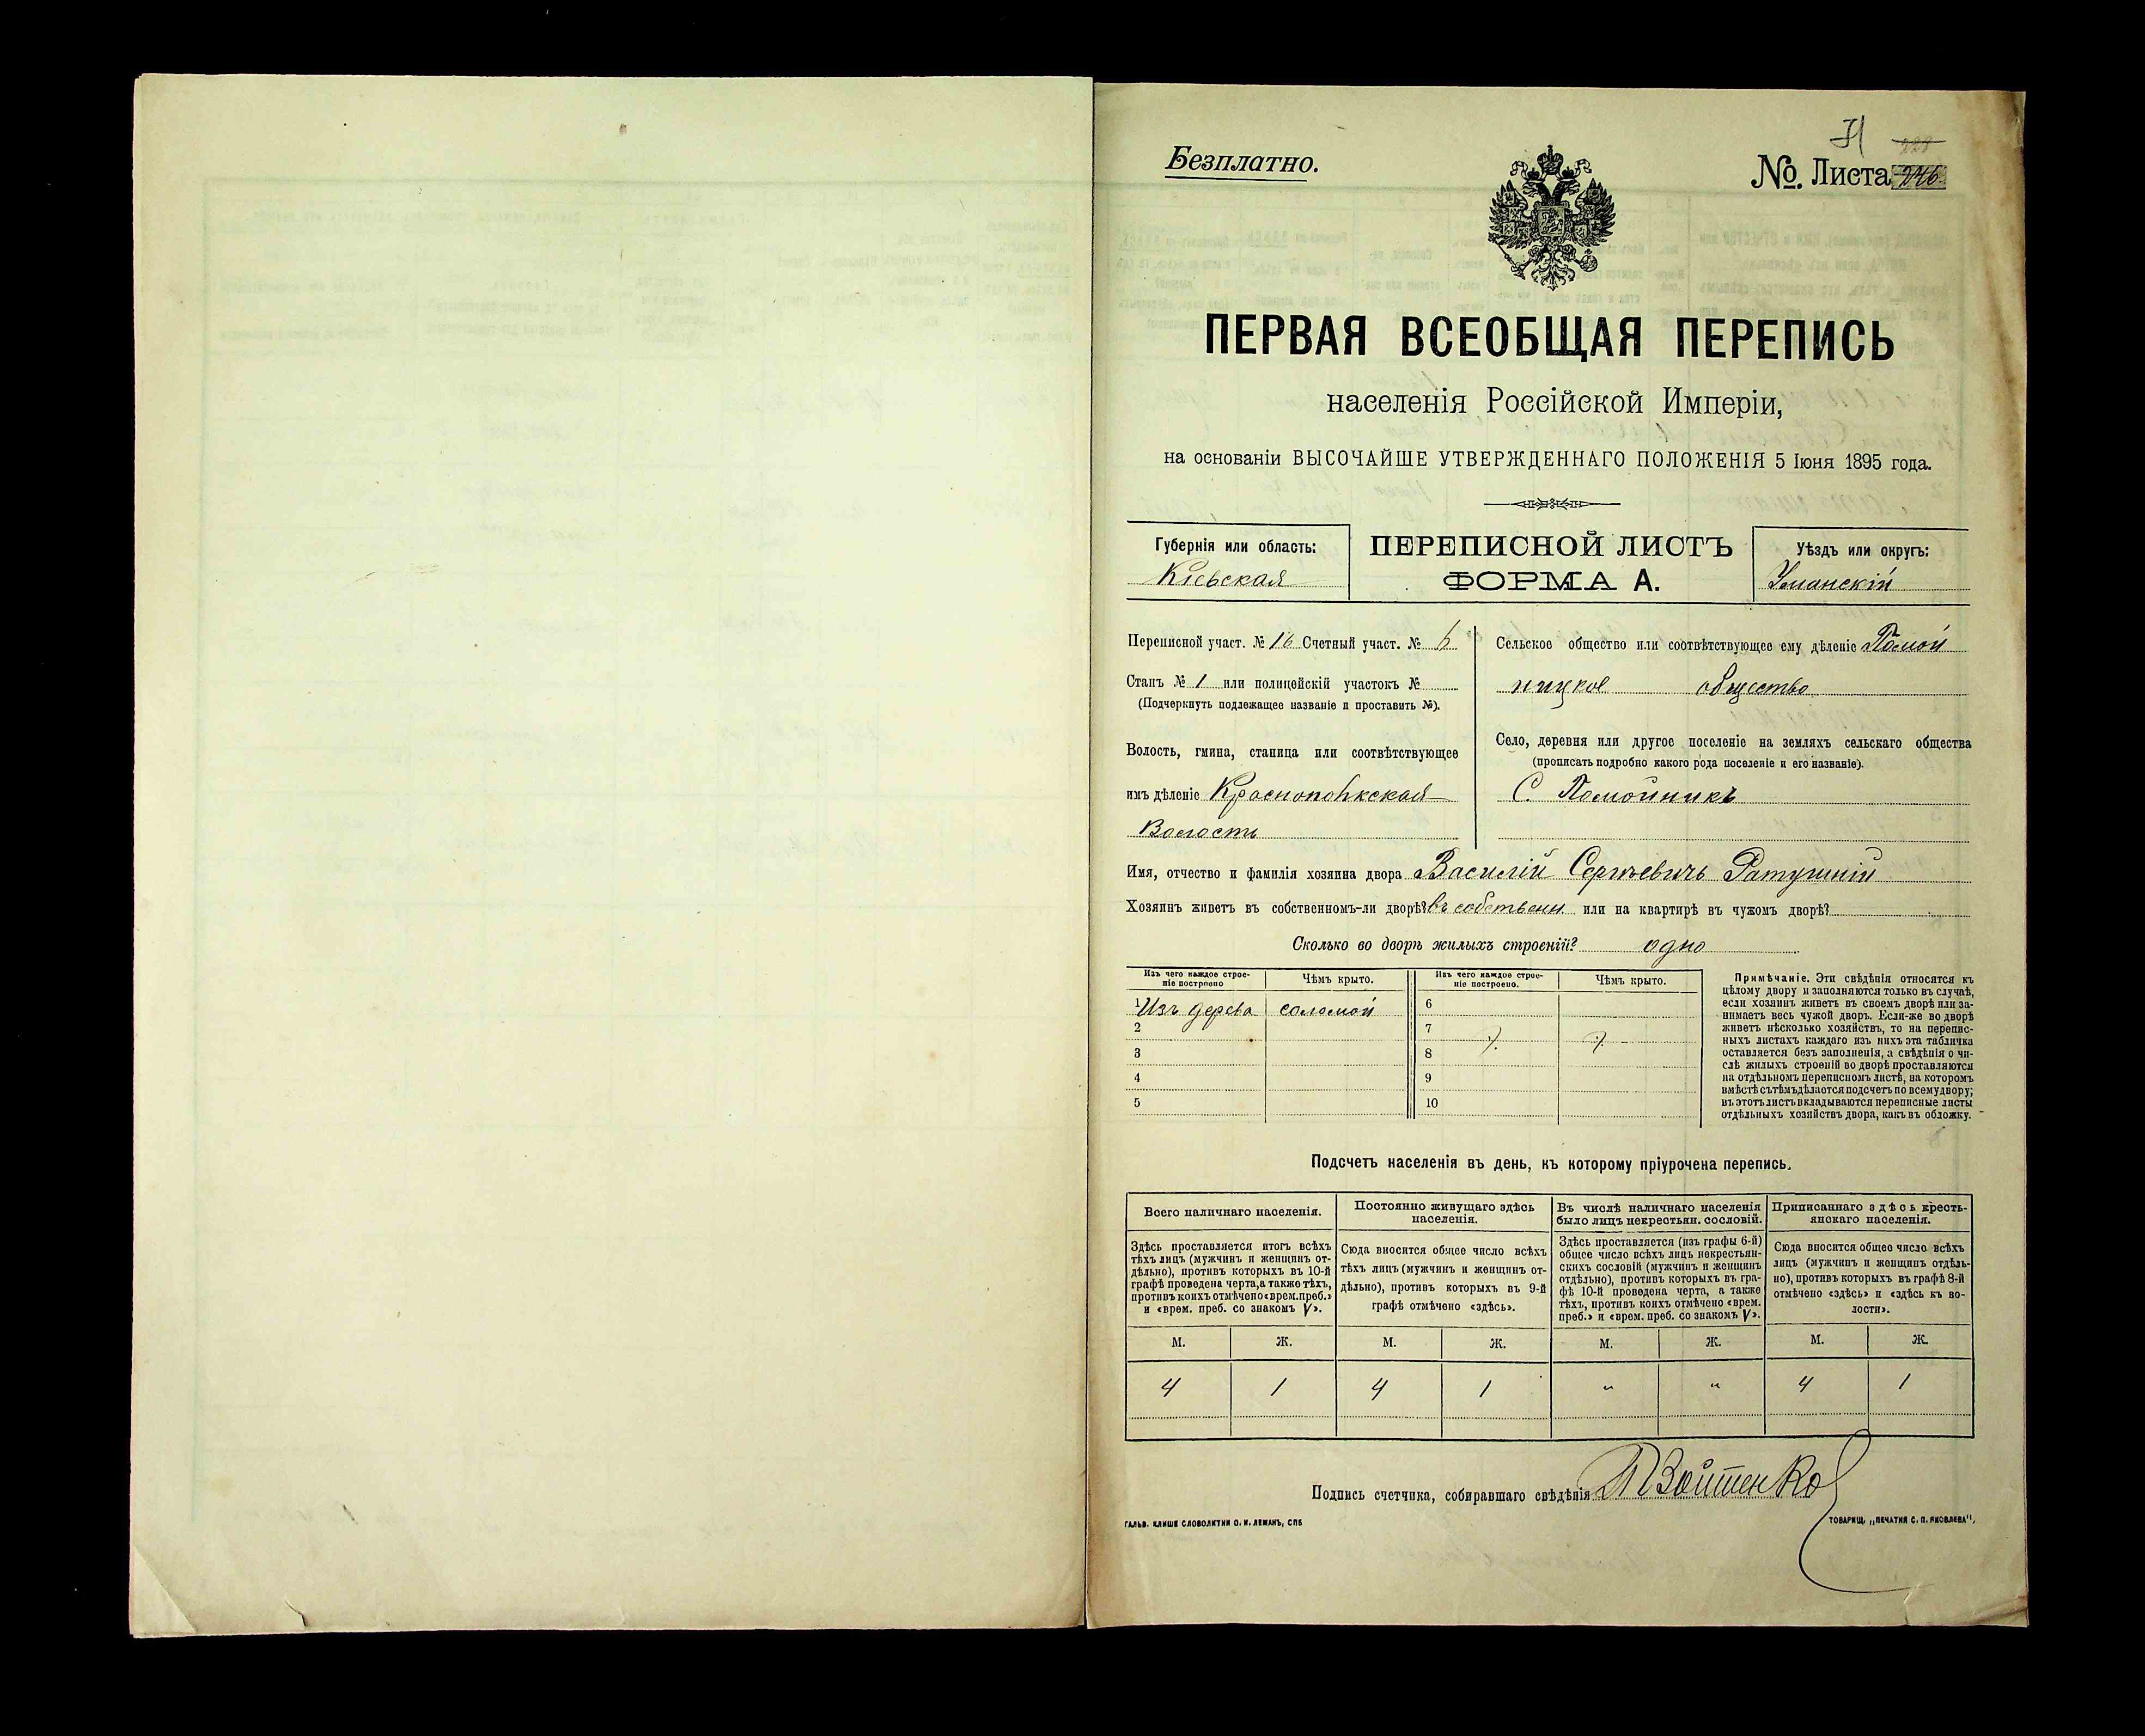 Безплатно.
№. Листа 246
228
ПЕРВАЯ ВСЕОБЩАЯ ПЕРЕПИСЬ
населенія Россійской Имперіи,
на основаніи ВЫСОЧАЙШЕ УТВЕРЖДЕННАГО ПОЛОЖЕНІЯ 5 Іюня 1895 года.
Губернія или область:
Кіевская
ПЕРЕПИСНОЙ ЛИСТЪ
ФОРМА А.
Уѣздъ или округъ:
Уманскій
Переписной участ. № 16 Счетный участ. №
Станъ № 1 или полицейскій участокъ №
(Подчеркнуть подлежащее названіе и проставить №).
Волость, гмина, станица или соотвѣтствующее
имъ дѣленіе Краснополкская
Волость
Сельское общество или соотвѣтствующее ему дѣленіе Помой
ницкое общество
Село, деревня или другое поселеніе на земляхъ сельскаго общества
(прописать подробно какого рода поселеніе и его названіе).
С. Помойникъ
Имя, отчество и фамилія хозяина двора Василій Сергѣевичъ Ратушній
Хозяинъ живетъ въ собственномъ-ли дворѣ? въ собственн. или на квартирѣ въ чужомъ дворѣ?
Сколько во дворѣ жилыхъ строеній? одно
Изъ чего каждое строе-
ніе построено
Чѣмъ крыто.
Изъ чего каждое строе-
ніе построено.
Чѣмъ крыто.
1 Изъ дерева соломой
2
3
4
5
6
7
8
9
10
Примѣчаніе. Эти свѣдѣнія относятся къ
цѣлому двору и заполняются только въ случаѣ,
если хозяинъ живетъ въ своемъ дворѣ или за-
нимаетъ весь чужой дворъ. Если-же во дворѣ
живетъ нѣсколько хозяйствъ, то на перепис-
ныхъ листахъ каждаго изъ нихъ эта табличка
оставляется безъ заполненія, а свѣдѣнія о чи-
слѣ жилыхъ строеній во дворѣ проставляются
на отдѣльномъ переписномъ листѣ, на которомъ
вмѣстѣ съ тѣмъ дѣлается подсчетъ по всему двору;
въ этотъ листъ вкладываются переписные листы
отдѣльныхъ хозяйствъ двора, какъ въ обложку.
Подсчетъ населенія въ день, къ которому пріурочена перепись.
Всего наличнаго населенія.
Постоянно живущаго здѣсь
населенія.
Въ числѣ наличнаго населенія
было лицъ некрестьян. сословій.
Приписаннаго здѣсь кресть-
янскаго населенія.
Здѣсь проставляется итогъ всѣхъ
тѣхъ лицъ (мужчинъ и женщинъ от-
дѣльно), противъ которыхъ въ 10-й
графѣ проведена черта, а также тѣхъ,
противъ коихъ отмѣчено «врем. преб.»
и «врем. преб. со знакомъ V».
Сюда вносится общее число всѣхъ
тѣхъ лицъ (мужчинъ и женщинъ от-
дѣльно), противъ которыхъ въ 9-й
графѣ отмѣчено «здѣсь».
Здѣсь проставляется (изъ графы 6-й)
общее число всѣхъ лицъ некрестьян-
скихъ сословій (мужчинъ и женщинъ
отдѣльно), противъ которыхъ въ гра-
фѣ 10-й проведена черта, а также
тѣхъ, противъ коихъ отмѣчено «врем.
преб.» и «врем. преб. со знакомъ V».
Сюда вносится общее число всѣхъ
лицъ (мужчинъ и женщинъ отдѣль-
но), противъ которыхъ въ графѣ 8-й
отмѣчено «здѣсь» и «здѣсь къ во-
лости».
М. Ж. М. Ж. М. Ж. М. Ж.
4 1 4 1 " " 4 1
Подпись счетчика, собиравшаго свѣдѣнія Войтенко
ГАЛЬВ. КЛИШЕ СЛОВОЛИТНИ О. И. ЛЕМАНЪ, СПБ
ТОВАРИЩ. „ПЕЧАТНЯ С. П. ЯКОВЛЕВА",